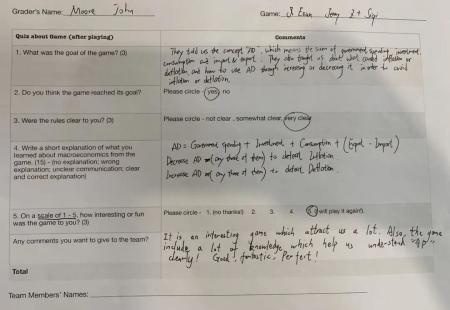 Grader's Name: Moore John Game: & Evan Jenny
Quiz about Game (after playing) Comments
1. What was the goal of the game? (3)
They told us the concept "AD", which means the sum of government spending, investment,
consumption and import & export. They also taught us about what caused inflation or
deflation and how to use AD through increasing or decreasing it in order to avoid
inflation or deflation.
2. Do you think the game reached its goal? Please circle - yes, no
3. Were the rules clear to you? (3) Please circle - not clear, somewhat clear, very clear
4. Write a short explanation of what you
learned about macroeconomics from the
game. (15) - (no explanation; wrong
explanation; unclear communication; clear
and correct explanation)
AD = Government spending + Investment + Consumption + (Export - Import)
Decrease AD (any three of them) to defeat Inflation.
Increase AD (any three of them) to defeat Deflation.
5. On a scale of 1 - 5, how interesting or fun
was the game to you? (3)
Please circle - 1. (no thanks!) 2. 3. 4. 5 (I will play it again!).
Any comments you want to give to the team?
It is an interesting game which attract us a lot. Also, the game
include a lot of knowledge which help us understand "AD"
clearly! Good! fantastic! Perfect!
Total
Team Members' Names: